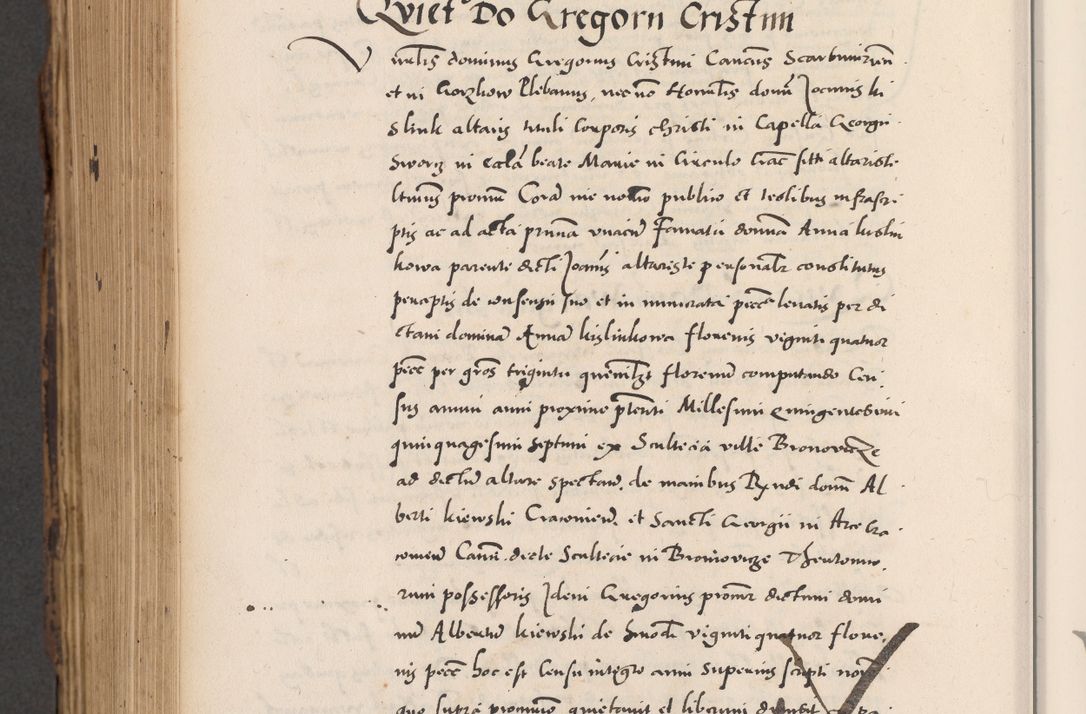 Quiet Do Gregorii Cristini
Vnrlis dominus Gregorius Cristini Canonicus Scarbimirien
et in Gorzkow Plebanus, nec no Honorlis domi Joannis ki
slink altaris tituli Corporis christi in Capella Georgii
Sworz in eccla beate Marie in Circulo Crac siti altariste
ltimus procur Cora me notario publico et testibus infrascri
ptis ac ad acta prnia vnacu Famata domna Anna kislin
kowa parente dicti Joanis altariste personalr constitutus
perceptis de consensu suo et in numerata pecc leuatis per di
ctam dominam Annam kislinkowa florenis viginti quatuor
pecc per gros triginta quemlzt florenu computando Cen
sus annui anni proxime ptteriti Millesimi quingentesimi
quinquagesimi septimi ex Scultecia ville Bronowicze
ad dictu altare spectan. de manibus Rndi domi Al
berti kiewski Cracouien. et Sancti Georgii in Arce Cra
couien Canci. dicte Scultecie in Bronowicze Theutonico
rum possessoris Idem Gregorius procur dictum domi
num Albertu kiewski de huiusmodi viginti quatuor flore
nis pecc hoc est Censu integro anni superius scripti nomi
quo supra procurio quietauit et liberum dimisit